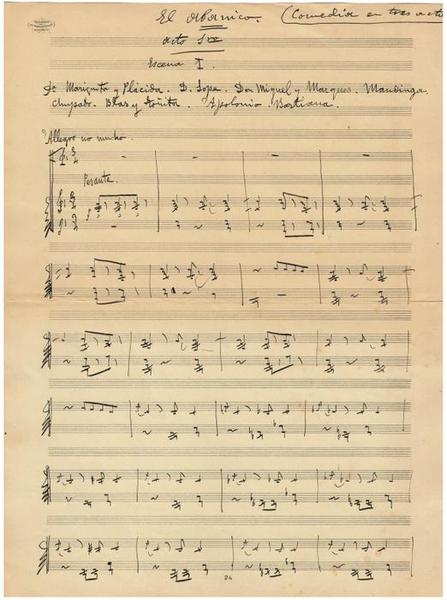 El abanico. (Comedia en tres actos
acto 1º
Escena I.
Mariquita y Plácida. D. Lope. Don Miguel y Marques. Mandinga.
Blas y Apolonio Bastiana.
Allegro no mucho.
Pesante.
f